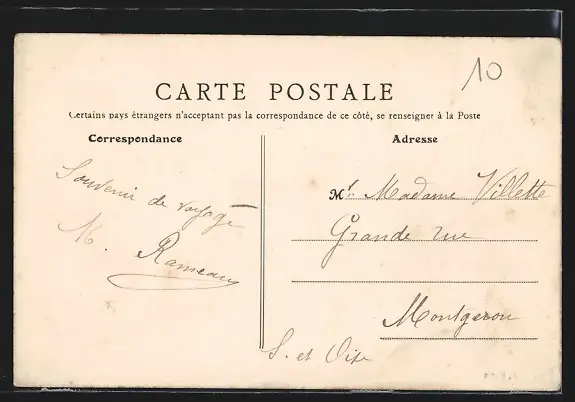 10
CARTE POSTALE
Certains pays étrangers n'acceptant pas la correspondance de ce côté, se renseigner à la Poste
Correspondance
Adresse
Souvenir de voyage
M. Rameau
Mr. Madame Villette
Grande rue
Montgeron
S. et Oise